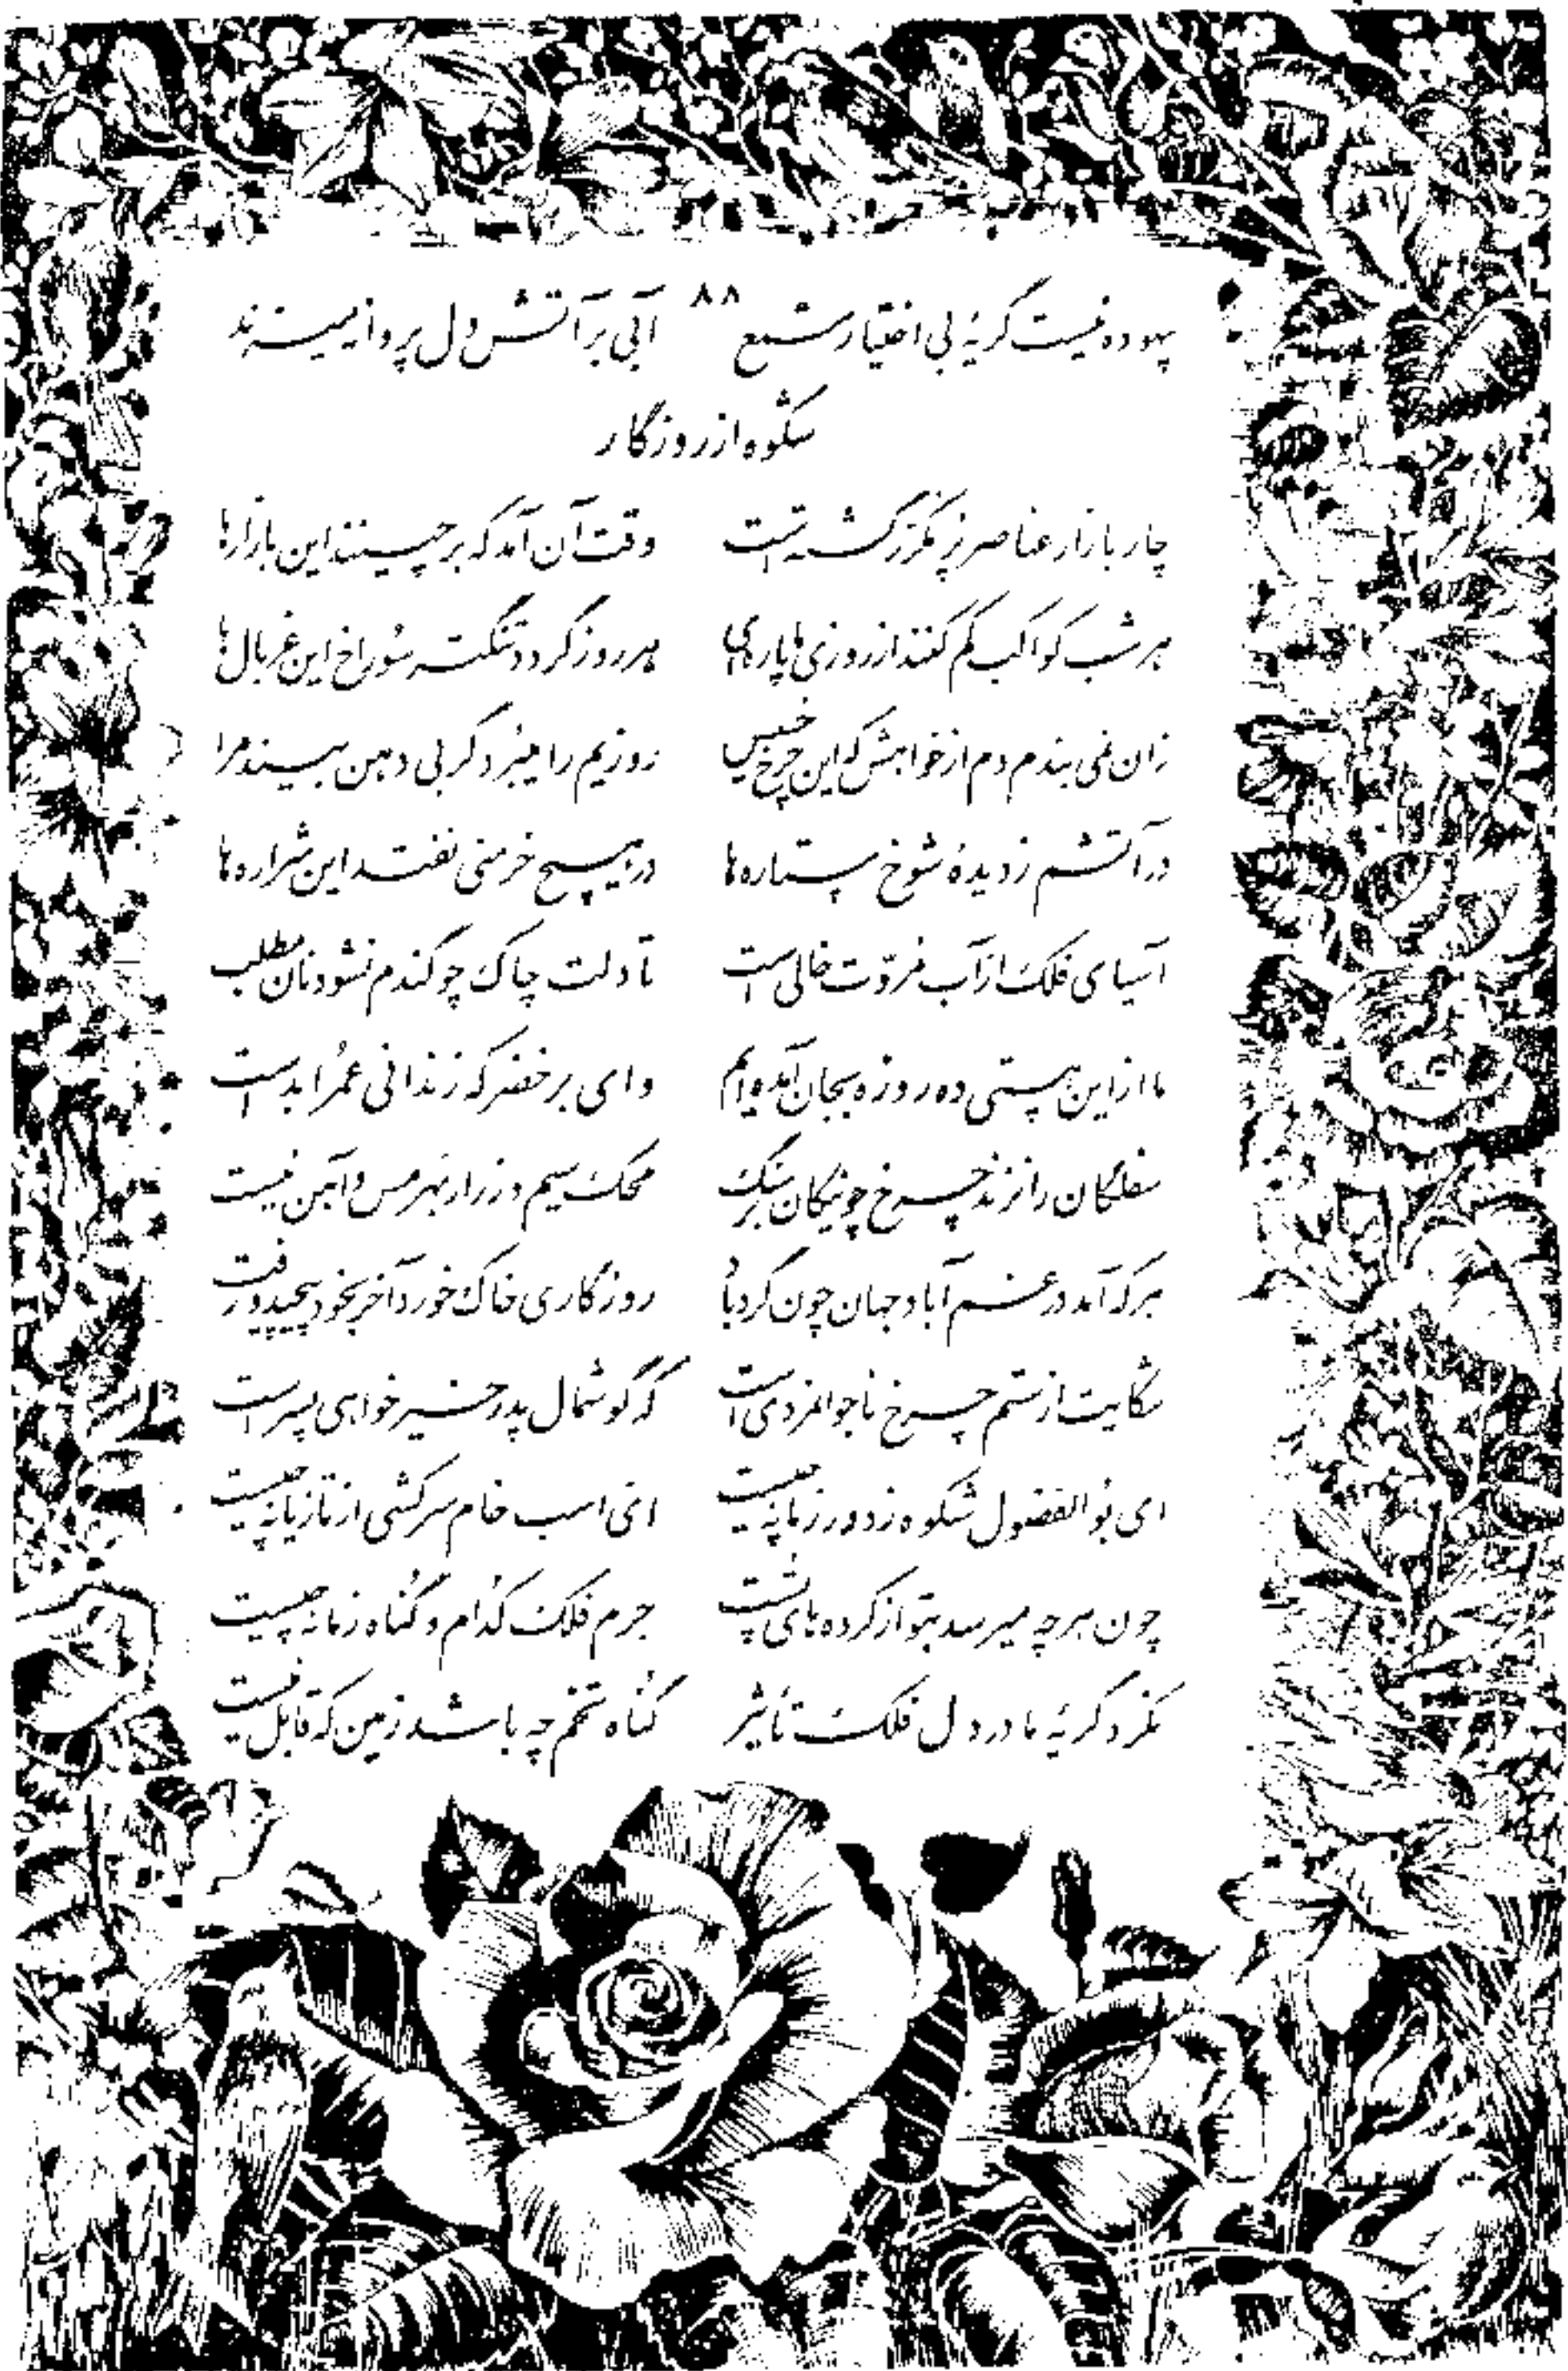 ۸۸
بیهوده نیست گریهٔ بی اختیار شمع آبی بر آتش دل پروانه میزند
شکوه از روزگار
چار بازار عناصر پر مکرر گشته است وقت آن آمد که برچینند این بازارها
هر شب کواکب کم کنند از روزی ما پاره‌ای هر روز گردد تنگتر سوراخ این غربال‌ها
زان نمی بندم دم از خواهش که این چرخ خسیس روزیم را میبرد گر بی دهن بیند مرا
در آتشم ز دیدهٔ شوخ ستاره‌ها در هیچ خرمنی نفتد این شراره‌ها
آسیای فلک از آب مروّت خالی است تا دلت چاک چو گندم نشود نان مطلب
ما از این هستی ده روزه بجان آمده‌ایم وای بر خضر که زندانی عمر ابد است
سفلگان را نزند چرخ چو نیکان بر سنگ محک سیم و زر از بهر مس و آهن نیست
هر که آمد در غم آباد جهان چون گردباد روزگاری خاک خورد آخر بخود پیچید و رفت
شکایت از ستم چرخ ناجوانمردی است که گوشمال پدر خیرخواهی پسر است
ای بوالفضول شکوه ز دور زمانه چیست ای اسب خام سرکشی از تازیانه چیست
چون هر چه میرسد بتو از کرده‌های تست جرم فلک کدام و گناه زمانه چیست
نکرد گریهٔ ما در دل فلک تأثیر گناه تخم چه باشد زمین که قابل نیست